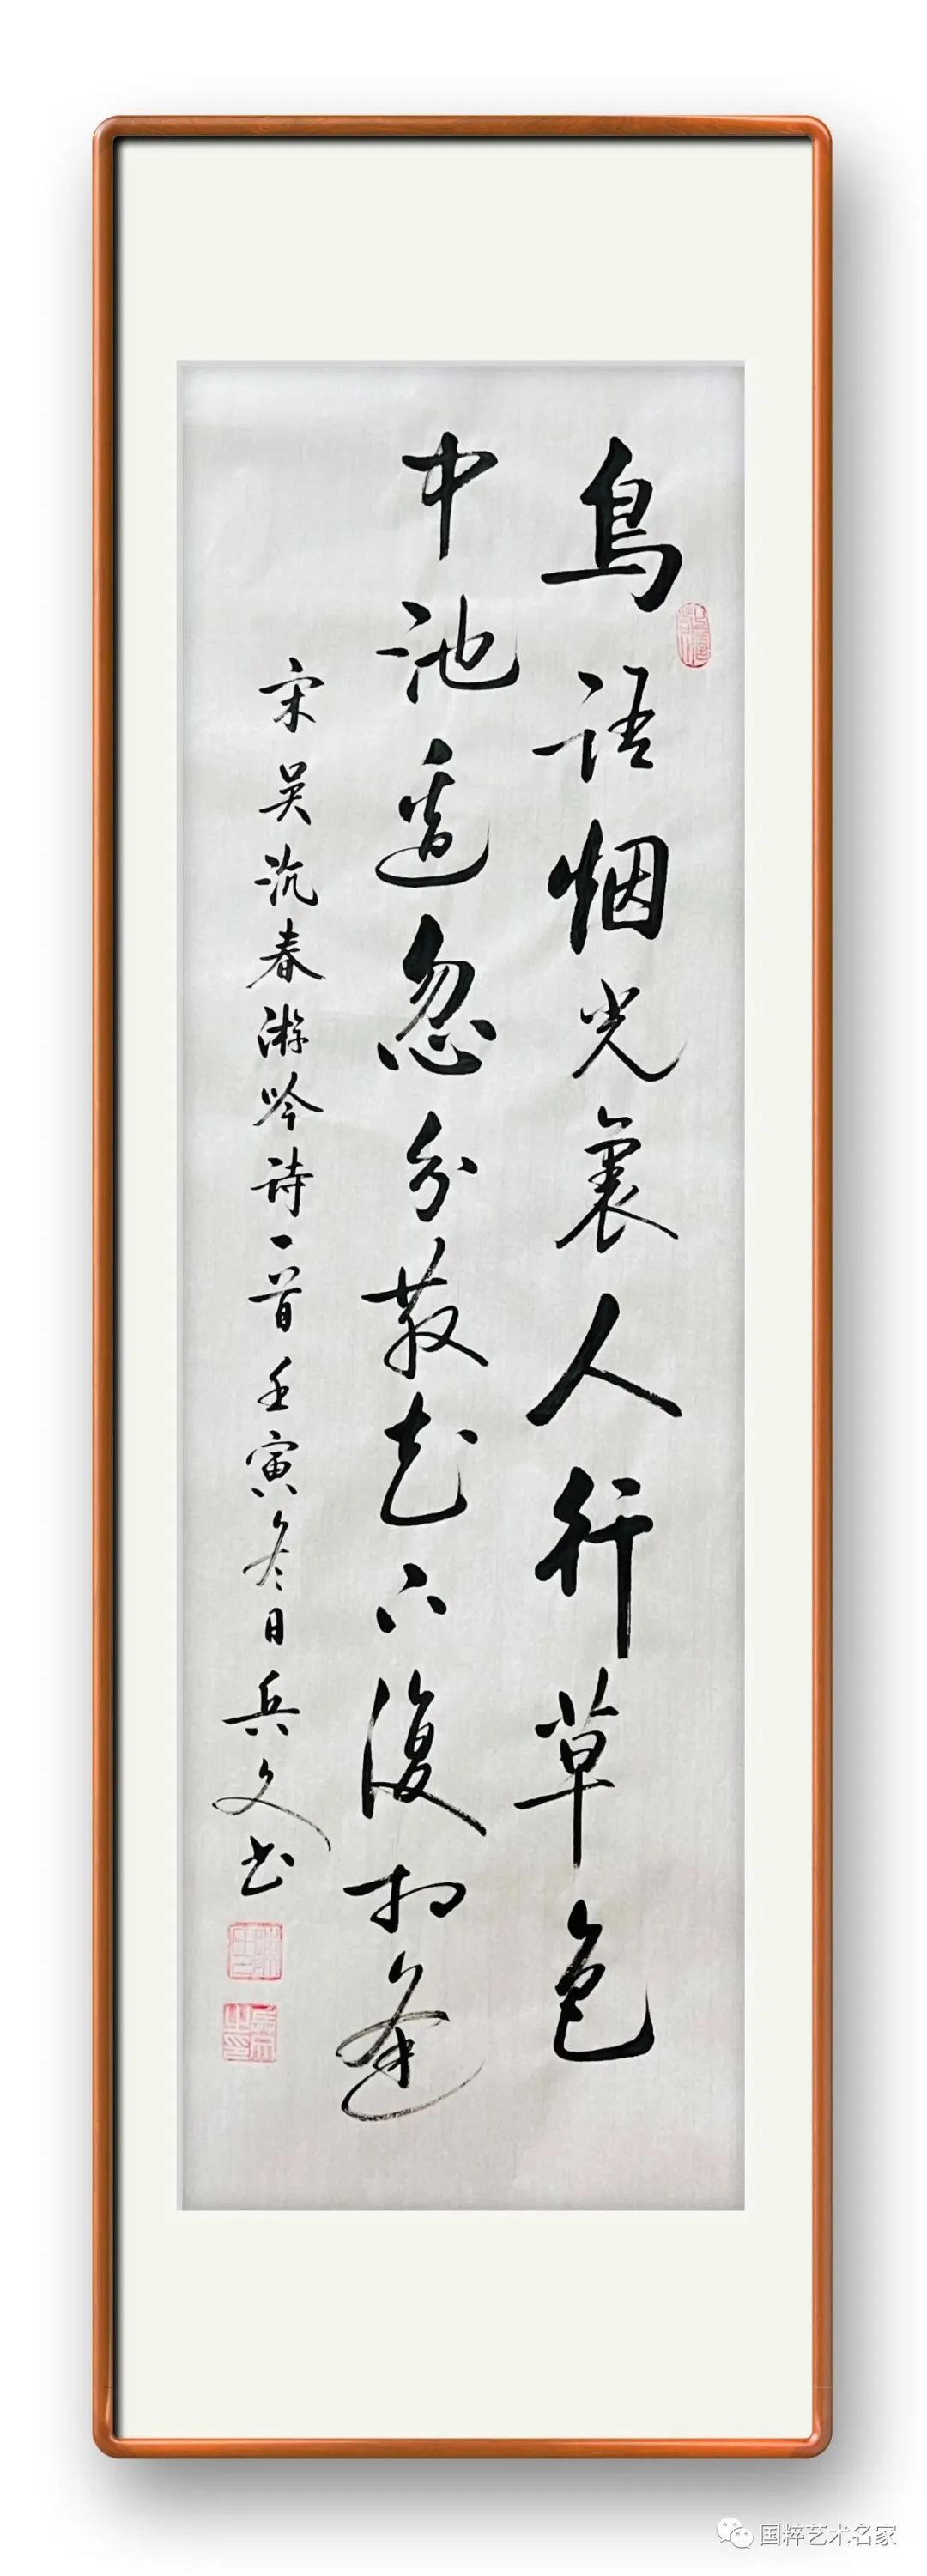 鳥语烟光裏人行草色
中池邊忽分散花下復相逢
宋吴沉春游吟诗一首壬寅冬日兵文书
国粹艺术名家